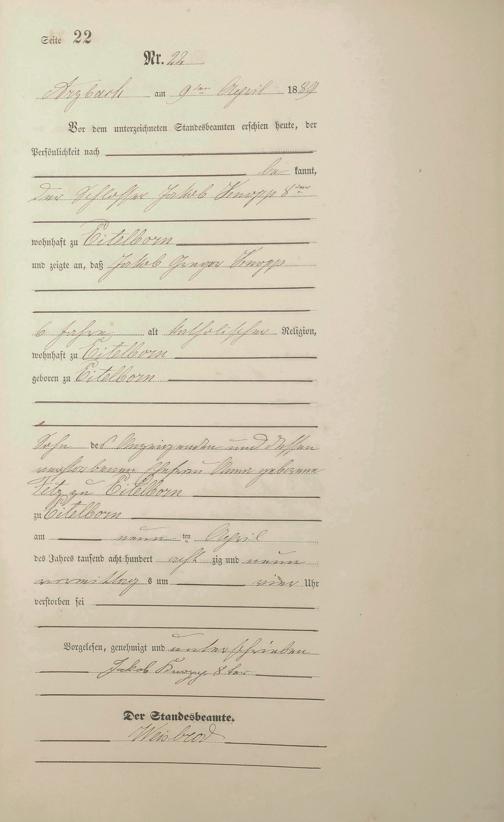 Seite 22
Nr. 22
Arzbach am 9ten April 1889
Vor dem unterzeichneten Standesbeamten erschien heute, der
Persönlichkeit nach
be kannt,
der Schlosser Jakob Knopp 8ter
wohnhaft zu Eitelborn
und zeigte an, daß Jakob Gregor Knopp
6 Jahre alt katholischer Religion,
wohnhaft zu Eitelborn
geboren zu Eitelborn
Sohn des Anzeigenden und dessen
verstorbenen Ehefrau Anna geborene
zu Eitelborn
zu Eitelborn
am neun ten April
des Jahres tausend acht hundert acht zig und neun
vormittag s um vier Uhr
verstorben sei
Vorgelesen, genehmigt und unterschrieben
Jakob Knopp 8ter
Der Standesbeamte.
Weisbrod